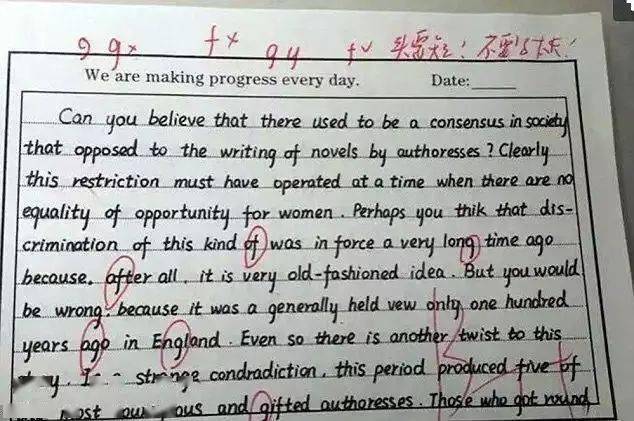 g g× f× g y f✓
We are making progress every day. Date:
Can you believe that there used to be a consensus in society
that opposed to the writing of novels by authoresses? Clearly
this restriction must have operated at a time when there are no
equality of opportunity for women. Perhaps you thik that dis-
crimination of this kind of was in force a very long time ago
because, after all, it is very old-fashioned idea. But you would
be wrong: because it was a generally held vew only one hundred
years ago in England. Even so there is another twist to this
condradiction, this period produced five of
and gifted authoresses. Those who got round